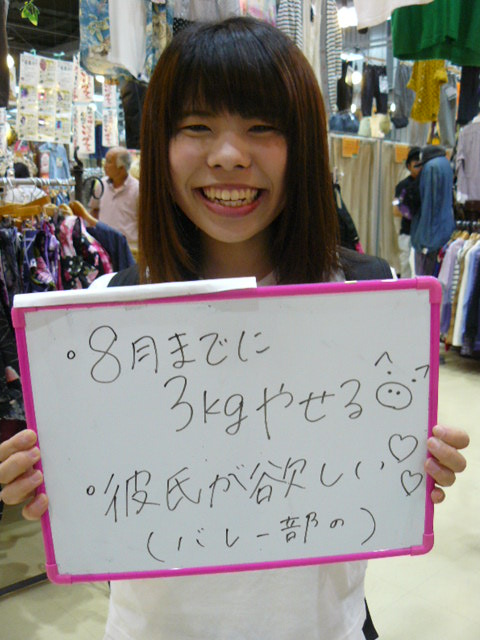 。8月までに
3kgやせる
。彼氏が欲しい♡♡
(バレー部の)